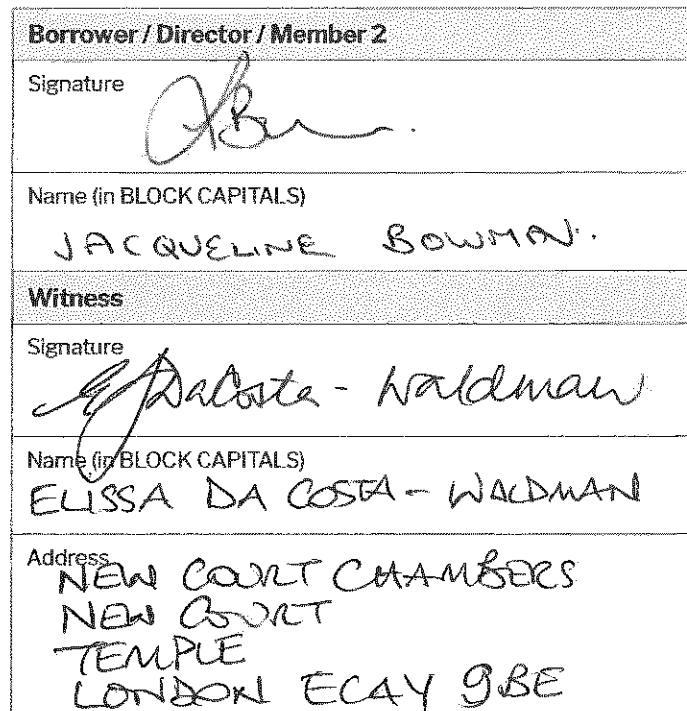 Borrower / Director / Member 2
Signature
Name (in BLOCK CAPITALS)
JACQUELINE BOWMAN.
Witness
Signature
E J DaCosta - Waldman
Name (in BLOCK CAPITALS)
ELISSA DA COSTA - WALDMAN
Address
NEW COURT CHAMBERS
NEW COURT
TEMPLE
LONDON EC4Y 9BE